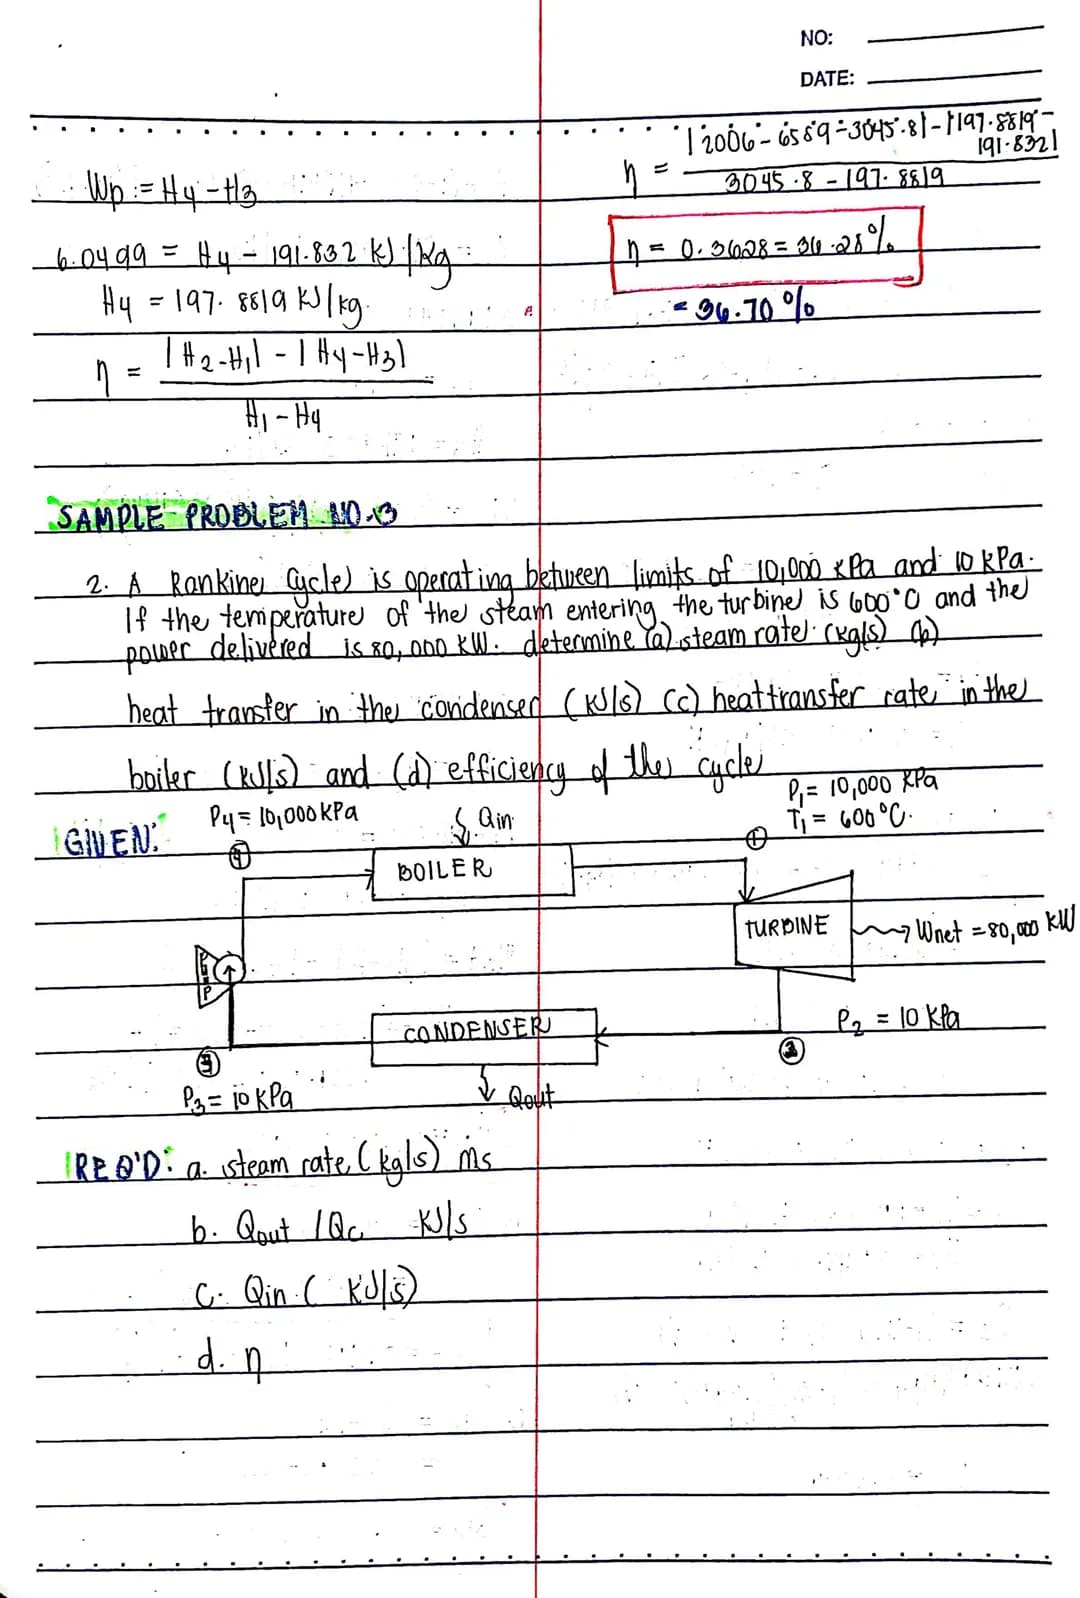 NO:
DATE:
Wp = H4 - H3
6.0499 = H4 - 191.832 KJ/Kg
H4 = 197.8819 KJ/kg.
η = |H2-H1| - |H4-H3|
H1 - H4
η = |2006.6589-3045.8|-|197.8819-
191.832|
3045.8 - 197.8819
η = 0.3628 = 36.28%
= 36.70%
SAMPLE PROBLEM NO.3
2. A Rankine Cycle is operating between limits of 10,000 kPa and 10 kPa.
If the temperature of the steam entering the turbine is 600°C and the
power delivered is 80,000 KW. determine (a) steam rate (kg/s) (b)
heat transfer in the condenser (KJ/s) (c) heat transfer rate in the
boiler (KJ/s) and (d) efficiency of the cycle
GIVEN:
P4 = 10,000 kPa
Qin
P1 = 10,000 KPa
T1 = 600°C.
4
BOILER
1
TURBINE
Wnet = 80,000 KW
PUMP
CONDENSER
P2 = 10 KPa
3
2
P3 = 10 KPa
Qout
REQ'D: a. steam rate (kg/s) ṁs
b. Qout / Qc KJ/s
c. Qin ( KJ/s)
d. η